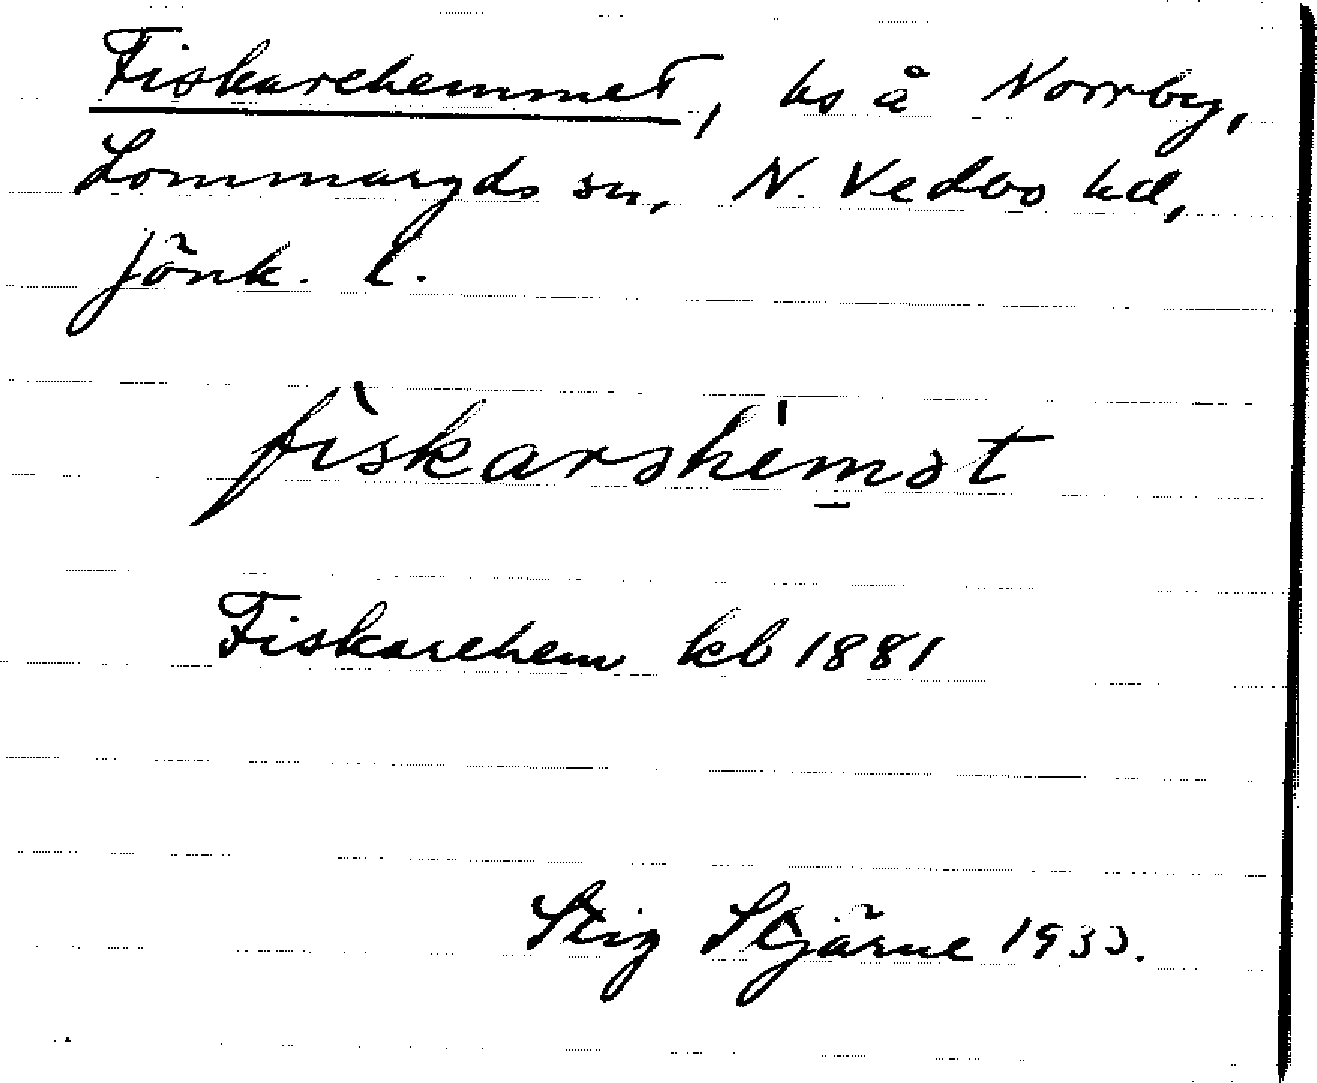 Fiskarehemmet, hs å Norrby,
Lommaryds sn, N. Vedbo hd,
Jönk. l.
fìskarəhémət
Fiskarehem kb 1881
Stig Stjärne 1933.